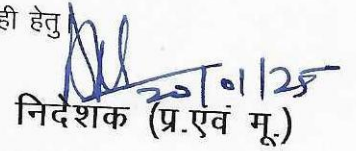 ही हेतु।
20/01/25
निदेशक (प्र.एवं मू.)